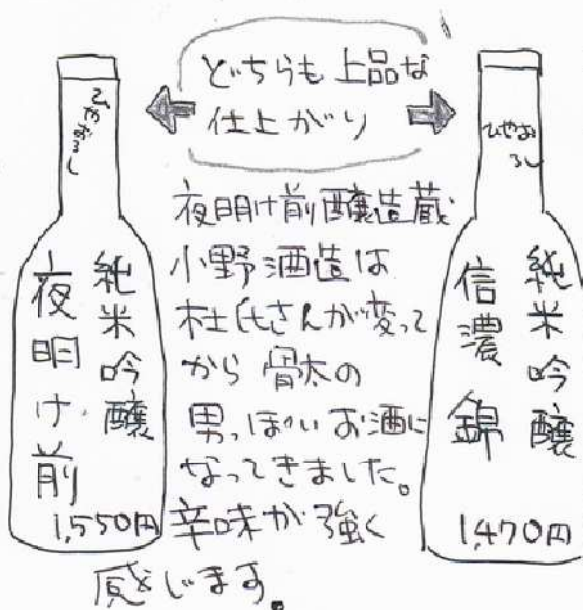 どちらも上品な
仕上がり
ひやおろし
純米吟醸
夜明け前
1,550円
夜明け前醸造蔵
小野酒造は
杜氏さんが変って
から骨太の
男っぽいお酒に
なってきました。
辛味が強く
感じます。
ひやお
ろし
純米吟醸
信濃錦
1,470円